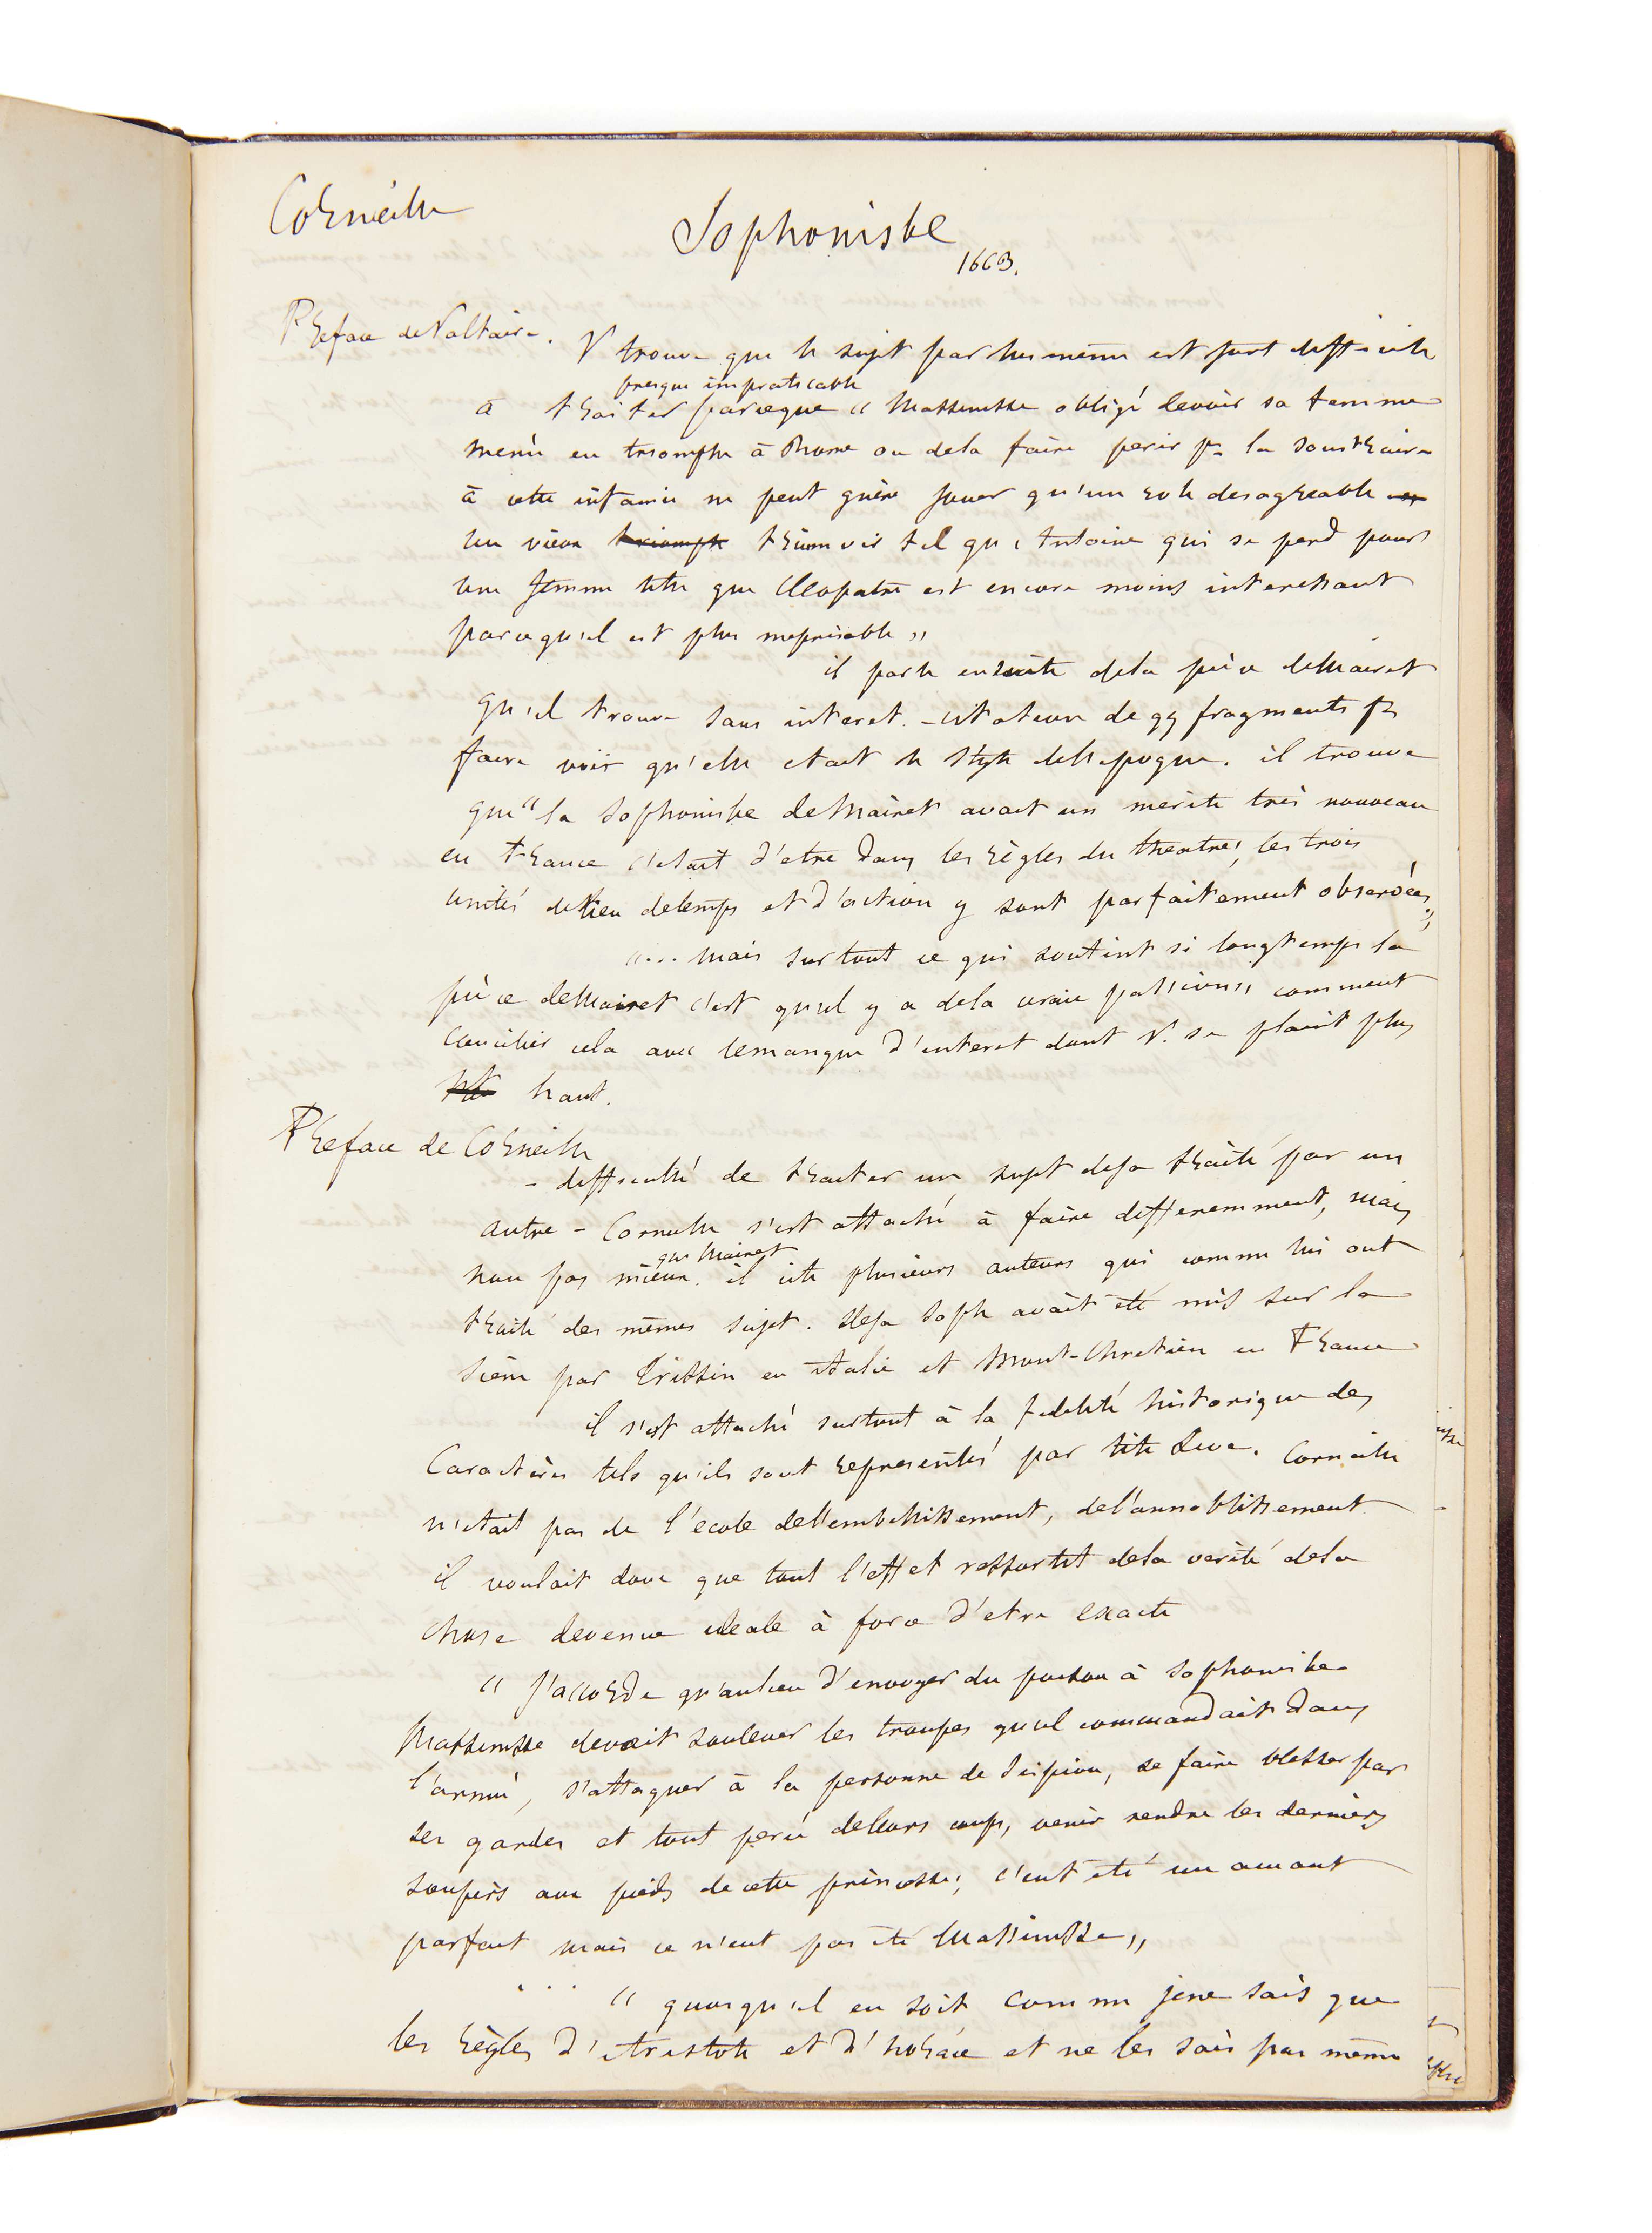 Corneille
Sophonisbe
1663.
Preface de Voltaire. V trouve que le sujet par lui meme est fort difficile
presque impraticable
à traiter parceque « Massinisse obligé de voir sa femme
menée en triomphe à Rome ou de la faire perir pr la soustraire
à cette infamie ne peut guère jouer qu'un role desagreable
un vieux triomph triumvir tel qu'Antoine qui se perd pour
une femme telle que Cleopatre est encore moins interessant
parcequ'il est plus meprisable »
il parle ensuite de la pièce de Mairet
qu'il trouve sans interet. - citation de qq fragments pr
faire voir qu'elle etait le style de l'epoque. il trouve
que « la Sophonisbe de Mairet avait un merite très nouveau
en France c'etait d'etre dans les règles du theatre, les trois
unités de lieu de temps et d'action y sont parfaitement observées »
«... mais surtout ce qui soutint si longtemps la
pièce de Mairet c'est qu'il y a de la vraie passion » comment
concilier cela avec le manque d'interet dont V. se plaint plus
haut.
Preface de Corneille
- difficulté de traiter un sujet deja traité par un
autre - Corneille s'est attaché à faire differemment, mais
que Mairet
non pas mieux. il cite plusieurs auteurs qui comme lui ont
traité des mêmes sujet. deja Soph avait été mis sur la
scène par Trissin en italie et Mont-Chretien en France
il s'est attaché surtout à la fidelité historique des
Caractères tels qu'ils sont representés par tite Live. Corneille
n'etait pas de l'ecole de l'embellissement, de l'annoblissement
il voulait donc que tout l'effet ressortit de la verité de la
chose devenue ideale à force d'etre exacte
« J'accorde qu'au lieu d'envoyer du poison à Sophonisbe
Massinisse devait soulever les troupes qu'il commandait dans
l'armée, s'attaquer à la personne de Scipion, se faire blesser par
ses gardes et tout percé de leurs coups, venir rendre les derniers
soupirs aux pieds de cette princesse; c'eut été un amant
parfait mais ce n'eut pas été Massinisse »
... « quoiqu'il en soit comme je ne sais que
les règles d'Aristote et d'horace et ne les sais pas même